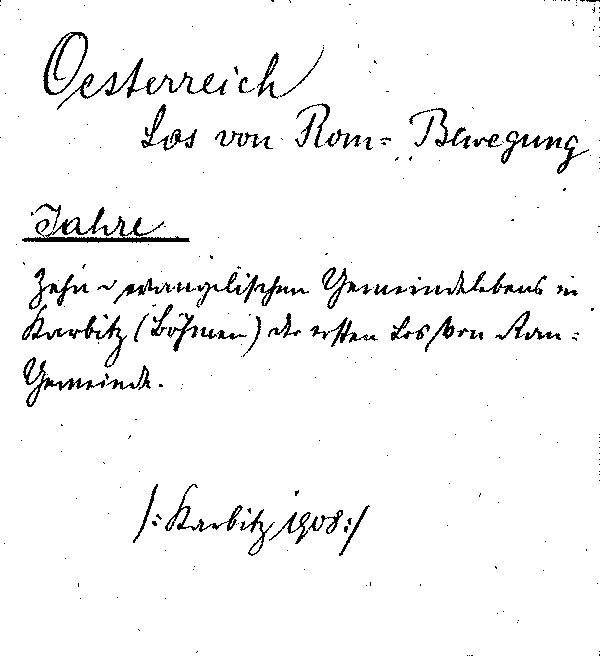 Oesterreich
Los von Rom= Bewegung
Jahre
Zehn ~ evangelischen Gemeindelebens in
Karbitz (Böhmen) der ersten Los von Rom=
Gemeinde.
/: Karbitz 1908 :/